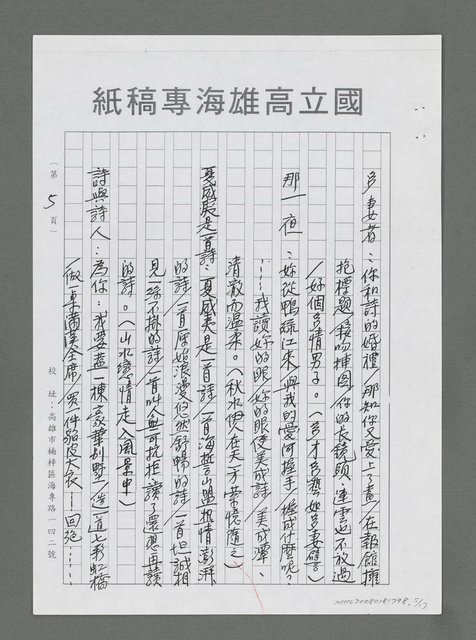 國立高雄海專稿紙
多妻者:你和詩的婚禮/那知你又愛上了畫/在報館擁
抱標題/接吻插圖/你的長鏡頭,連雲也不放過
/好個多情男子。(多才多藝如多妻譬)
那一夜:妳從鴨綠江來/與我的愛河握手/握成什麼呢?
……我讀妳的眼/妳的眼便美成詩/美成潭、
清澈而溫柔。(秋水伊人在天才常憶隨之)
夏威夷是一首詩:夏威夷是一首詩/一首海誓山盟熱情澎湃
的詩/一首原始浪漫悠然舒暢的詩/一首坦誠相
見一絲不掛的詩/一首叫人無可抗拒讀了還想再讀
的詩。(山水 情 走入風景中)
詩與詩人:為你:我要蓋一棟豪華別墅/造一道七彩虹橋
/做一桌滿漢全席/買一件貂皮大衣——回絕……
(第 5 頁)
校址:高雄市楠梓區海專路一四二號
NMTL20080181798, 5/17